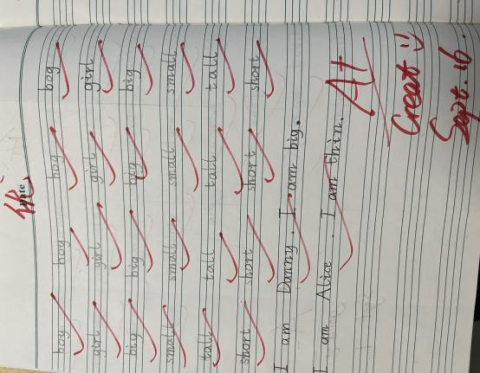 优
boy boy boy boy
girl girl girl girl
big big big big
small small small small
tall tall tall tall
short short short short
I am Danny. I am big.
I am Alice. I am thin.
A+
Great
Sept.16.